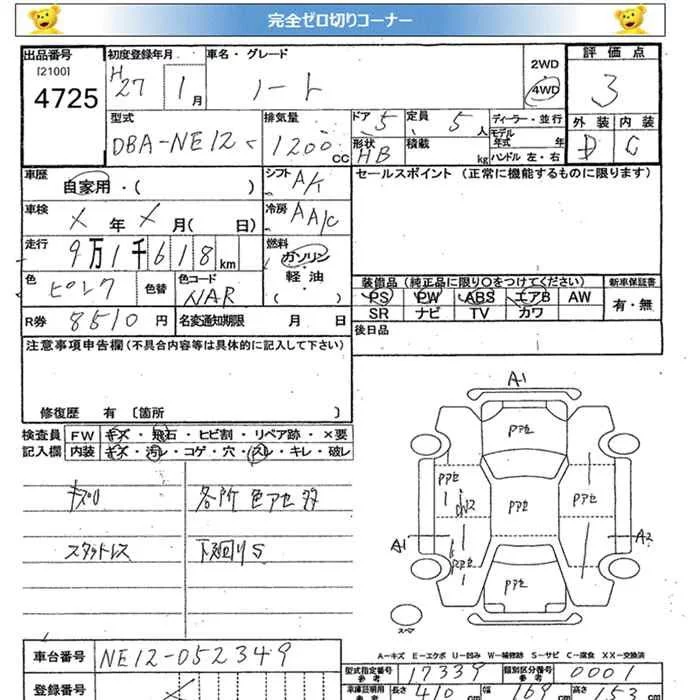 完全ゼロ切りコーナー
出品番号 初度登録年月 車名・グレード 評価点
[2100] H27 1月 ノート 2WD 4WD 3
4725
型式 排気量 ドア 5 定員 5人 ディーラー・並行 外装 内装
DBA-NE12 1200cc 形状 HB 積載 kg モデル年式 年 ハンドル 左・右 D C
車歴 自家用・( ) シフト A/t セールスポイント (正常に機能するものに限ります)
車検 X年X月( 日) 冷房 AAC
走行 9万1千618km 燃料 ガソリン・軽油・( )
色 ピンク 色替 色コード NAR 装備品 (純正品に限り○をつけてください) 新車保証書
PS PW ABS エアB AW 有・無
SR ナビ TV カワ
R券 8510円 名変通知期限 月 日 後日品
注意事項申告欄 (不具合内容等は具体的に記入して下さい)
修復歴 有 〔箇所 〕
検査員 FW キズ・飛石・ヒビ割・リペア跡・×要
記入欄 内装 キズ・汚レ・コゲ・穴・スレ・キレ・破レ
各所 色アセ
スタットレス 下廻りS
A1
Pアセ
Pアセ Pアセ Pアセ
A1 A2
Pアセ
Pアセ
スペア
A-キズ E-エクボ U-凹み W-補修跡 S-サビ C-腐食 XX-交換済
車台番号 NE12-052349
型式指定番号 参考 17339 類別区分番号 参考 0001
登録番号 車庫証明用 参考 長さ 410cm 幅 169 高さ 153cm